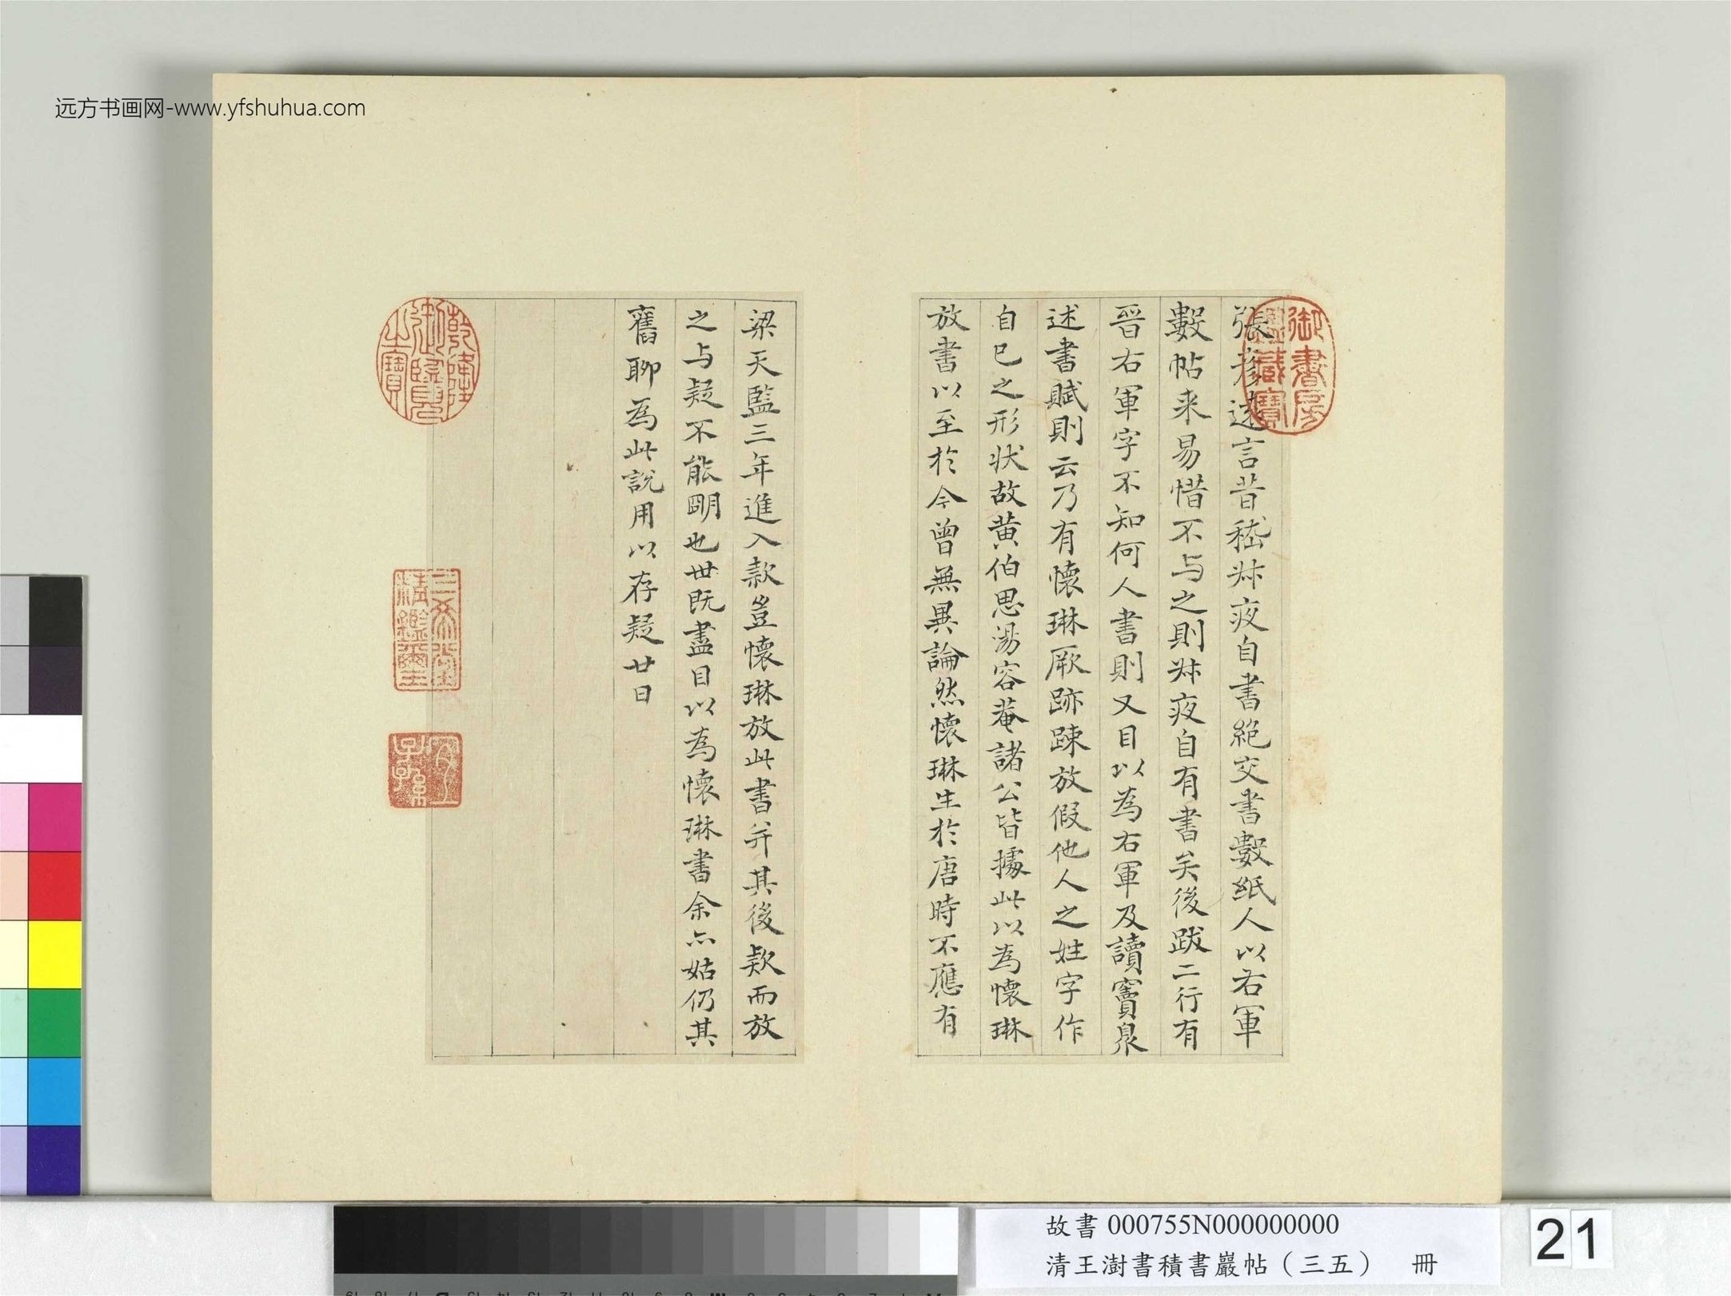 远方书画网-www.yfshuhua.com
張彦遠言昔嵇叔夜自書絶交書數紙人以右軍
數帖来易惜不与之則叔夜自有書矣後跋二行有
晉右軍字不知何人書則又目以為右軍及讀竇臮
述書賦則云乃有懷琳厥跡踈放假他人之姓字作
自己之形状故黄伯思湯容菴諸公皆據此以為懷琳
放書以至於今曾無異論然懷琳生於唐時不應有
梁天監三年進入款豈懷琳放此書并其後款而放
之与疑不能明也世既盡目以為懷琳書余亦姑仍其
舊聊為此説用以存疑廿日
御書房鑑藏寶
乾隆御覽之寶
三希堂精鑑璽
宜子孫
故書 000755N000000000
清王澍書積書巖帖（三五） 冊
21